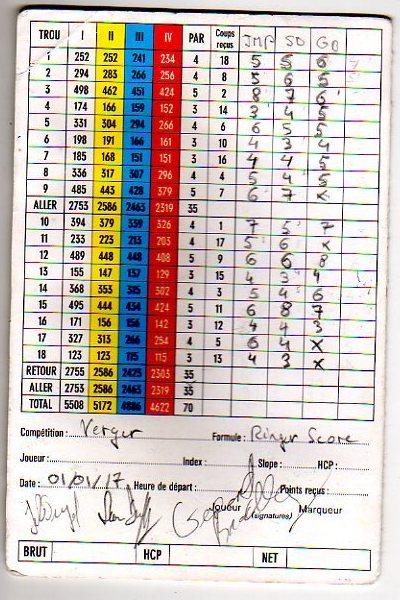 TROU I II III IV PAR Coups reçus JMP SD GB
1 252 252 241 234 4 18 5 5 6
2 294 283 266 256 4 8 5 6 5
3 498 462 451 424 5 2 8 7 6
4 174 166 159 152 3 14 3 4 5
5 331 304 294 266 4 6 6 5 5
6 198 191 166 161 3 10 4 3 4
7 185 168 151 151 3 16 4 4 5
8 336 317 307 296 4 4 5 4 5
9 485 443 428 379 5 7 6 7 x
ALLER 2753 2586 2463 2319 35
10 394 379 339 326 4 1 7 5 7
11 233 223 213 203 4 17 5 6 x
12 489 448 448 408 5 9 6 6 8
13 155 147 137 129 3 15 4 3 4
14 368 353 315 302 4 3 5 4 6
15 495 444 434 424 5 11 6 8 7
16 171 156 156 142 3 12 4 4 3
17 327 313 266 254 4 5 6 4 x
18 123 123 115 115 3 13 4 3 x
RETOUR 2755 2586 2423 2303 35
ALLER 2753 2586 2463 2319 35
TOTAL 5508 5172 4886 4622 70
Compétition : Verger Formule : Ringer Score
Joueur : Index : Slope : HCP :
Date : 01/01/17 Heure de départ : Points reçus :
Joueur (signatures) Marqueur
BRUT HCP NET